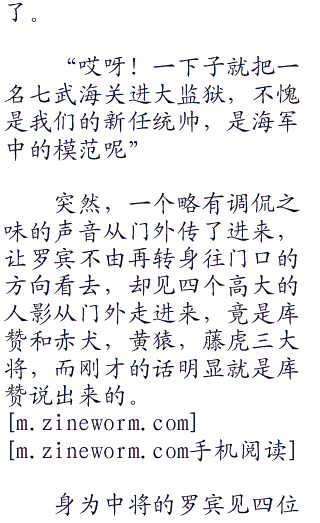 了。
“哎呀！一下子就把一
名七武海关进大监狱，不愧
是我们的新任统帅，是海军
中的模范呢”
突然，一个略有调侃之
味的声音从门外传了进来，
让罗宾不由再转身往门口的
方向看去，却见四个高大的
人影从门外走进来，竟是库
赞和赤犬，黄猿，藤虎三大
将，而刚才的话明显就是库
赞说出来的。
[m.zineworm.com]
[m.zineworm.com手机阅读]
身为中将的罗宾见四位